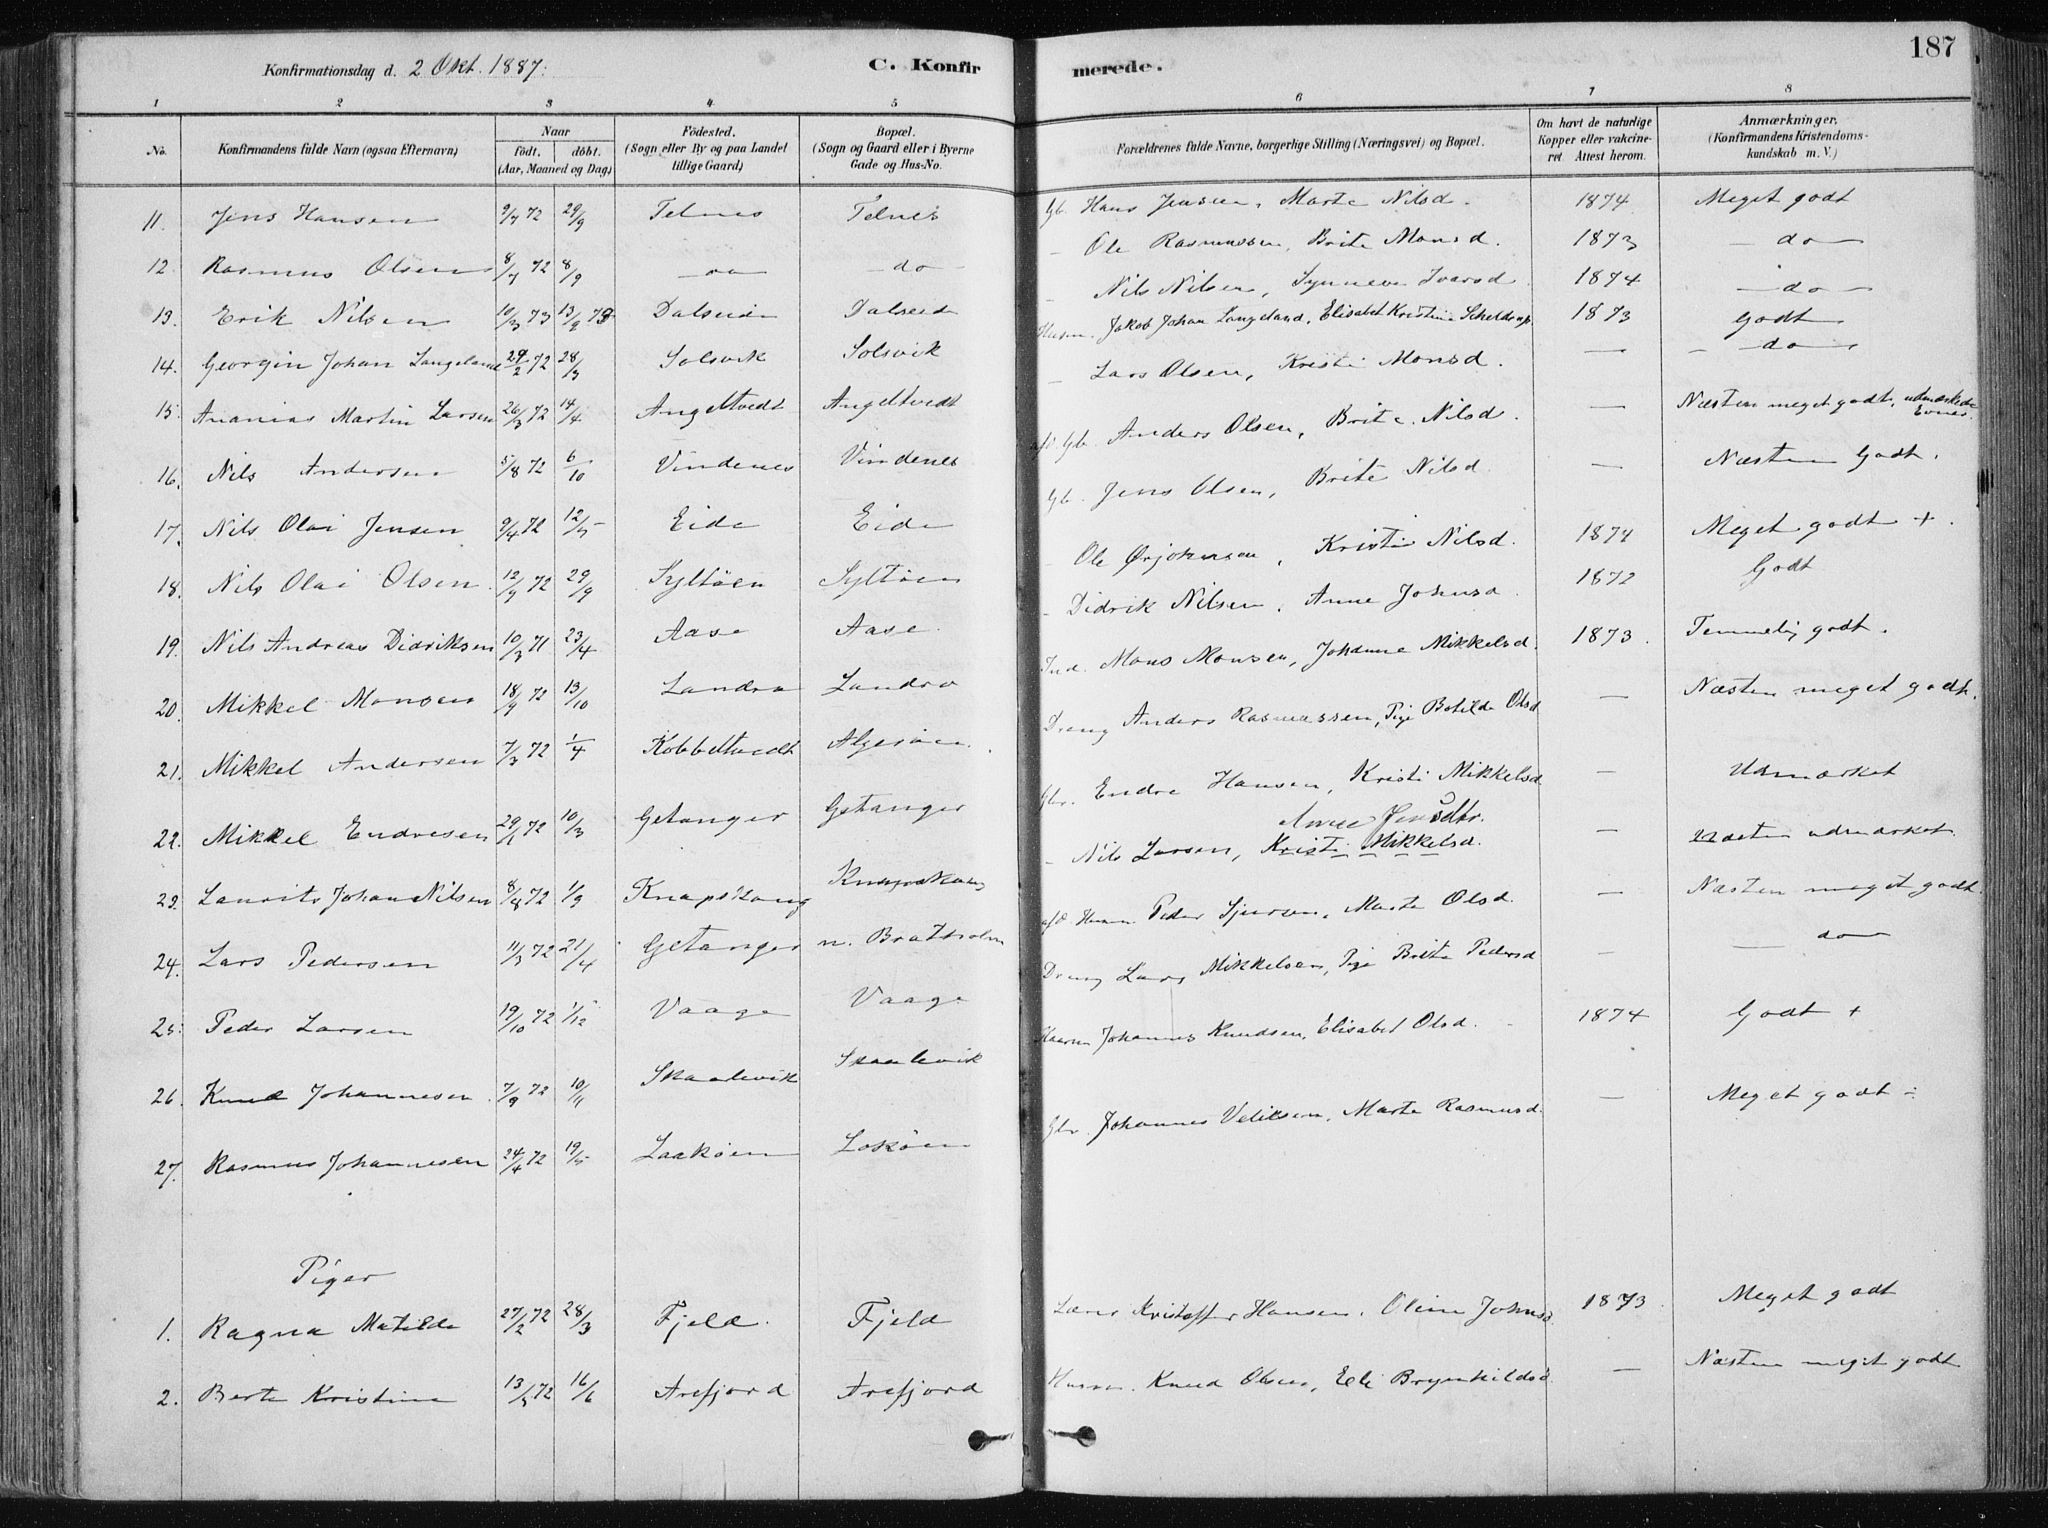 187
Konfirmationsdag d. 2 Okt. 1887.
C. Konfirmerede.
1 2 3 4 5 6 7 8
No. Konfirmandens fulde Navn (ogsaa Efternavn) Naar födt. döbt. (Aar, Maaned og Dag) Födested. (Sogn eller By og paa Landet tillige Gaard) Bopæl. (Sogn og Gaard eller i Byerne Gade og Hus-No. Forældrenes fulde Navne, borgerlige Stilling (Næringsvei) og Bopæl. Om havt de naturlige Kopper eller vakcineret. Attest herom. Anmærkninger. (Konfirmandens Kristendomskundskab m. V.)
11. Jens Hansen 9/7 72 29/9 Telnes Telnes Gb. Hans Jensen, Marte Nilsd. 1874 Meget godt
12. Rasmus Olsen 8/7 72 8/9 — do — — do — – Ole Rasmussen, Brite Monsd. 1873 — do —
13. Erik Nilsen 10/3 73 13/9 73 Dalseide Dalseide – Nils Nilsen, Synneve Ivarsd. 1874 — do —
14. Georgin Johan Langeland 29/2 72 28/3 Solsvik Solsvik Husm. Jakob Johan Langeland, Elisabet Kristine Scheldrup. 1873 Godt
15. Ananias Martin Larsen 26/3 72 14/4 Angeltvedt Angeltvedt – Lars Olsen, Kristi Monsd. — – do –
16. Nils Andersen 5/8 72 6/10 Vindenes Vindenes afd. Gb. Anders Olsen, Brite Nilsd. — Næsten meget godt, udmærkede Evner.
17. Nils Olai Jensen 9/4 72 12/5 Eide Eide Gb. Jens Olsen, Brite Nilsd. — Næsten Godt.
18. Nils Olai Olsen 12/9 72 29/9 Syltöen Syltöen – Ole Ørjohnsen, Kristi Nilsd. 1874 Meget godt +.
19. Nils Andreas Didriksen 10/3 71 23/4 Aase Aase. – Didrik Nilsen, Anne Johnsd. 1872 Godt
20. Mikkel Monsen 18/9 72 13/10 Landro Landro Ind. Mons Monsen, Johanne Mikkelsd. 1873. Temmelig godt.
21. Mikkel Andersen 7/3 72 1/4 Kobbeltvedt Algeröen. Dreng Anders Rasmussen, Pige Botilde Olsd — Næsten meget godt.
22. Mikkel Endresen 29/1 72 10/3 Getanger Getanger Gbr. Endre Hansen, Kristi Mikkelsd — Udmærket
Anne Jensdtr.
23. Laurits Johan Nilsen 8/8 72 1/9 Knapskaug Knapskaug – Nils Larsen, Kristi Mikkelsd. — Næsten udmærket.
24. Lars Pedersen 11/3 72 21/4 Getanger n. Bratholm afd. Husm. Peder Sjursen, Marte Olsd. — Næsten meget godt.
25. Peder Larsen 19/10 72 1/12 Vaage Vaage Dreng Lars Mikkelsen, Pige Brite Pedersd — — do —
26. Knud Johannesen 7/9 72 10/11 Skaalevik Skaalevik Husm Johannes Knudsen, Elisabet Olsd. 1874 Godt +
27. Rasmus Johannesen 24/4 72 19/5 Laaköen Loköen Gbr. Johannes Veliksen, Marte Rasmusd. — Meget godt ÷
Piger
1. Ragna Matilde 27/2 72 28/3 Fjeld. Fjeld Lærer Kristoffer Hansen, Oline Johnsd. 1873. Meget godt
2. Berte Kristine 13/5 72 16/6 Arefjord Arefjord Husm. Knud Olsen, Eli Brynhildsd. — Næsten meget godt